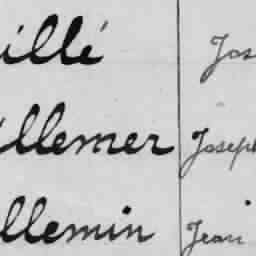 illé Jos
illemer Joseph
llemin Jean